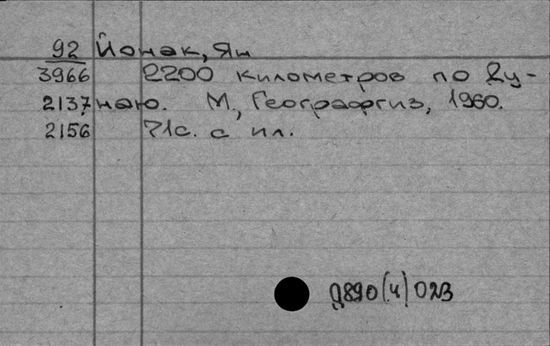 92 Йонак, Ян
3966 2200 километров по Ду-
2137 наю. М., Географгиз, 1960.
2156 71с. с ил.
Д890(4)023